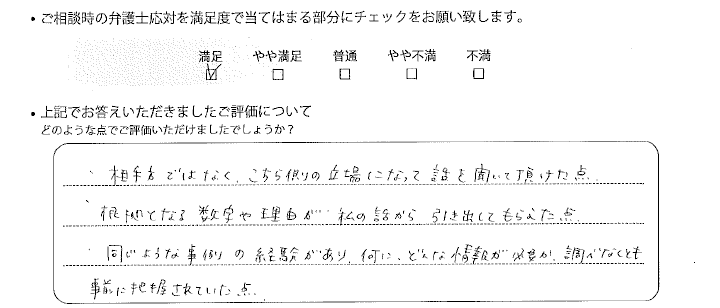 ・ご相談時の弁護士応対を満足度で当てはまる部分にチェックをお願い致します。
満足 やや満足 普通 やや不満 不満
☑ ☐ ☐ ☐ ☐
・上記でお答えいただきましたご評価について
どのような点でご評価いただけましたでしょうか？
・相手方ではなく、こちら側の立場になって話を聞いて頂けた点.
・根拠となる数字や理由が私の話から引き出してもらえた点.
・同じような事例の経験があり、何に、どんな情報が必要か、調べなくとも
事前に把握されていた点.